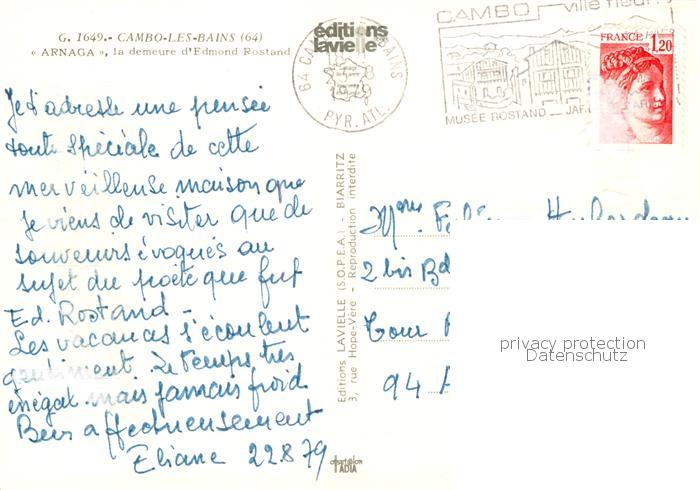 G. 1649.- CAMBO-LES-BAINS (64)
« ARNAGA », la demeure d'Edmond Rostand
éditions
lavielle
PYR. ATL.
CAMBO ville fleurie
MUSÉE ROSTAND
FRANCE 1,20
Je t'adresse une pensée
toute spéciale de cette
merveilleuse maison que
je viens de visiter que de
souvenirs évoqués au
sujet du poète que fut
Ed. Rostand -
Les vacances s'écoulent
gentiment. Le temps très
inégal mais jamais froid
Bien affectueusement
Eliane 22.8.79
Editions LAVIELLE (S.O.P.E.A.) - BIARRITZ
3, rue Hope-Vère - Reproduction interdite
Mme
2 bis Bd
Tour
94
privacy protection
Datenschutz